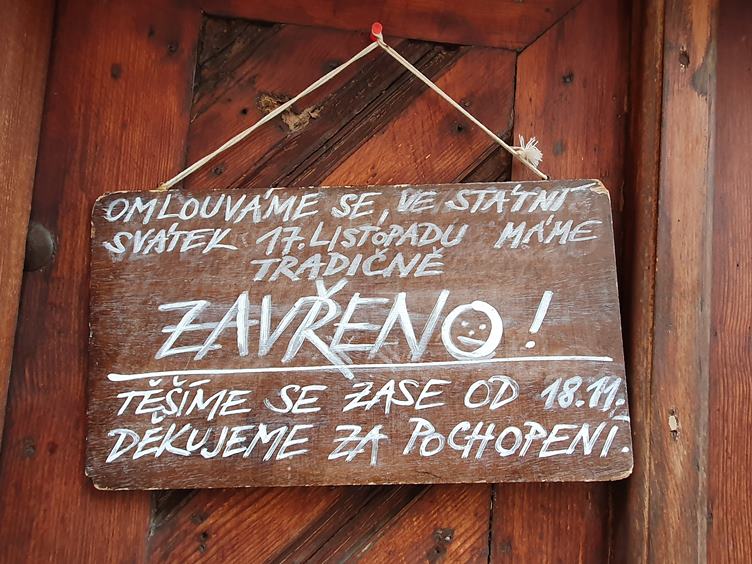 OMLOUVÁME SE, VE STÁTNÍ
SVÁTEK 17. LISTOPADU MÁME
TRADIČNĚ
ZAVŘENO!
TĚŠÍME SE ZASE OD 18.11.
DĚKUJEME ZA POCHOPENÍ.